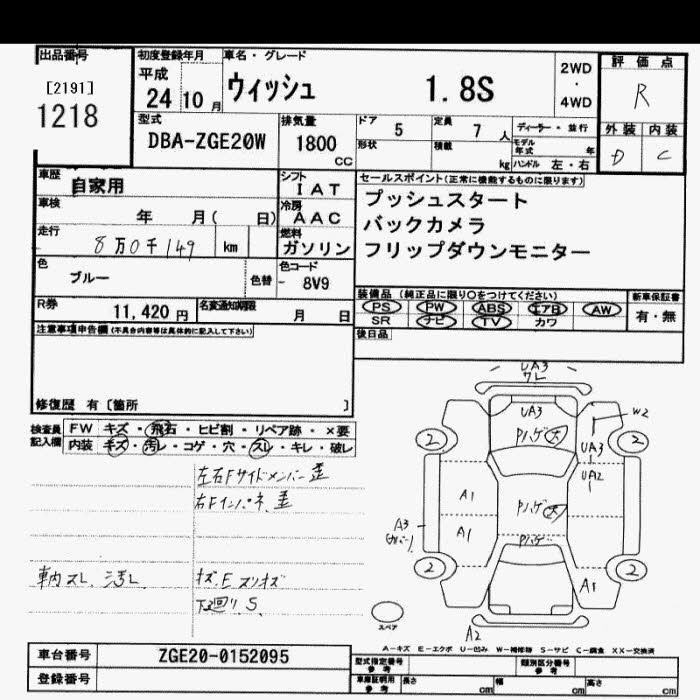 出品番号
[2191]
1218
初度登録年月
平成
24 10 月
車名・グレード
ウィッシュ 1.8S
2WD
・
4WD
評価点
R
外装 内装
D C
型式
DBA-ZGE20W
排気量
1800
cc
ドア
5
定員
7 人
形状
積載
kg
ディーラー・並行
モデル年式 年
ハンドル 左・右
車歴
自家用
シフト
IAT
車検
年 月( 日)
冷房
AAC
走行
8万0千149 km
燃料
ガソリン
色
ブルー
色替
色コード
- 8V9
R券
11,420 円
名変通知期限
月 日
セールスポイント(正常に機能するものに限ります)
プッシュスタート
バックカメラ
フリップダウンモニター
装備品 (純正品に限り○をつけてください)
PS PW ABS エアB AW
SR ナビ TV カワ
新車保証書
有・無
後日品
注意事項申告欄(不具合内容等は具体的に記入して下さい)
修復歴 有〔箇所 〕
検査員記入欄
FW キズ・飛石・ヒビ割・リペア跡・×要
内装 キズ・汚レ・コゲ・穴・スレ・キレ・破レ
左右Fサイドメンバー歪
右Fインパネ、歪
車内スレ、汚レ
キズ.E スリキズ
下廻り S
UA3
ワレ
UA3
Pハゲ 大
W2
2
2
UA3
UA2
A1
A1
Pハゲ 大
Pハゲ
A3
(カバー)
2
2
A1
A2
スペア
A-キズ E-エクボ U-凹み W-補修跡 S-サビ C-腐食 XX-交換済
車台番号
ZGE20-0152095
登録番号
型式指定番号
参考
類別区分番号
参考
車庫証明用
参考
長さ cm
幅 cm
高さ cm